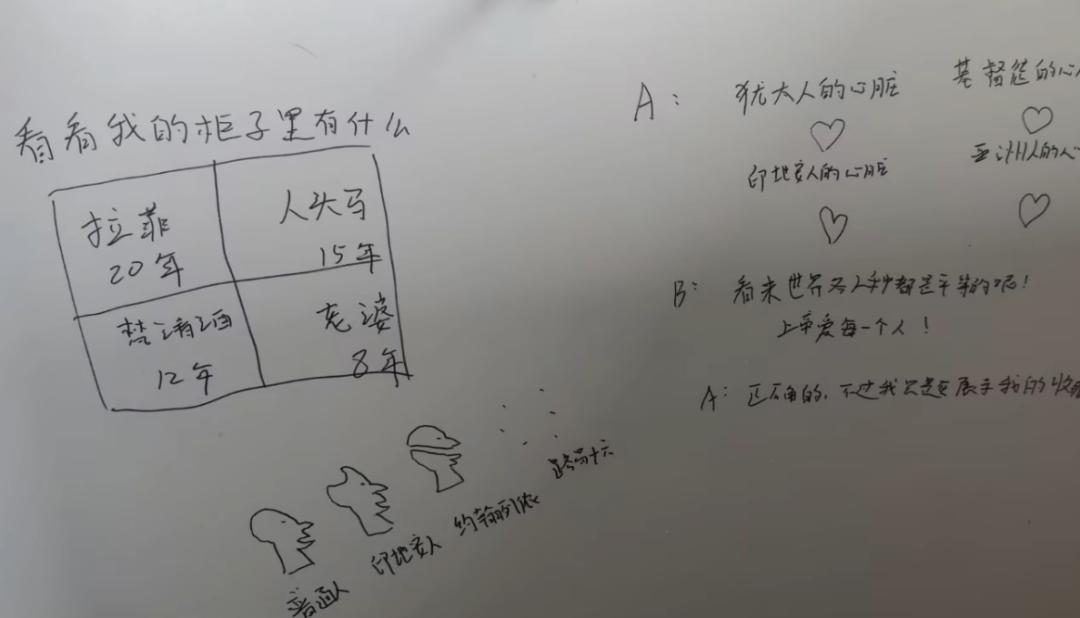 看看我的柜子里有什么
拉菲
20年
人头马
15年
梵清酒
12年
老婆
8年
普通人
印地安人
约翰列侬
路易十六
A: 犹太人的心脏
基督徒的心
印地安人的心脏
亚洲人的心
B: 看来世界各人种都是平等的呢!
上帝爱每一个人!
A: 正确的, 不过我只是在展示我的收